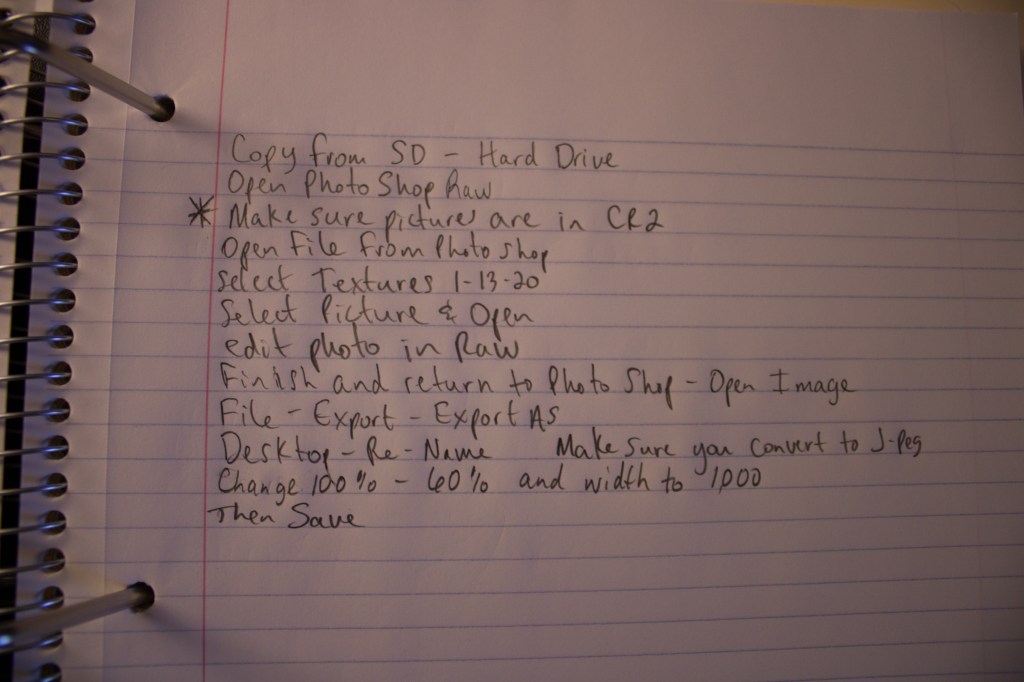 Copy from SD - Hard Drive
Open Photo Shop Raw
* Make sure pictures are in CR2
Open File from Photo shop
Select Textures 1-13-20
Select Picture & Open
edit photo in Raw
Finish and return to Photo Shop - Open Image
File - Export - Export AS
Desktop - Re-Name Make Sure you convert to J-Peg
Change 100% - 60% and width to 1,000
Then Save